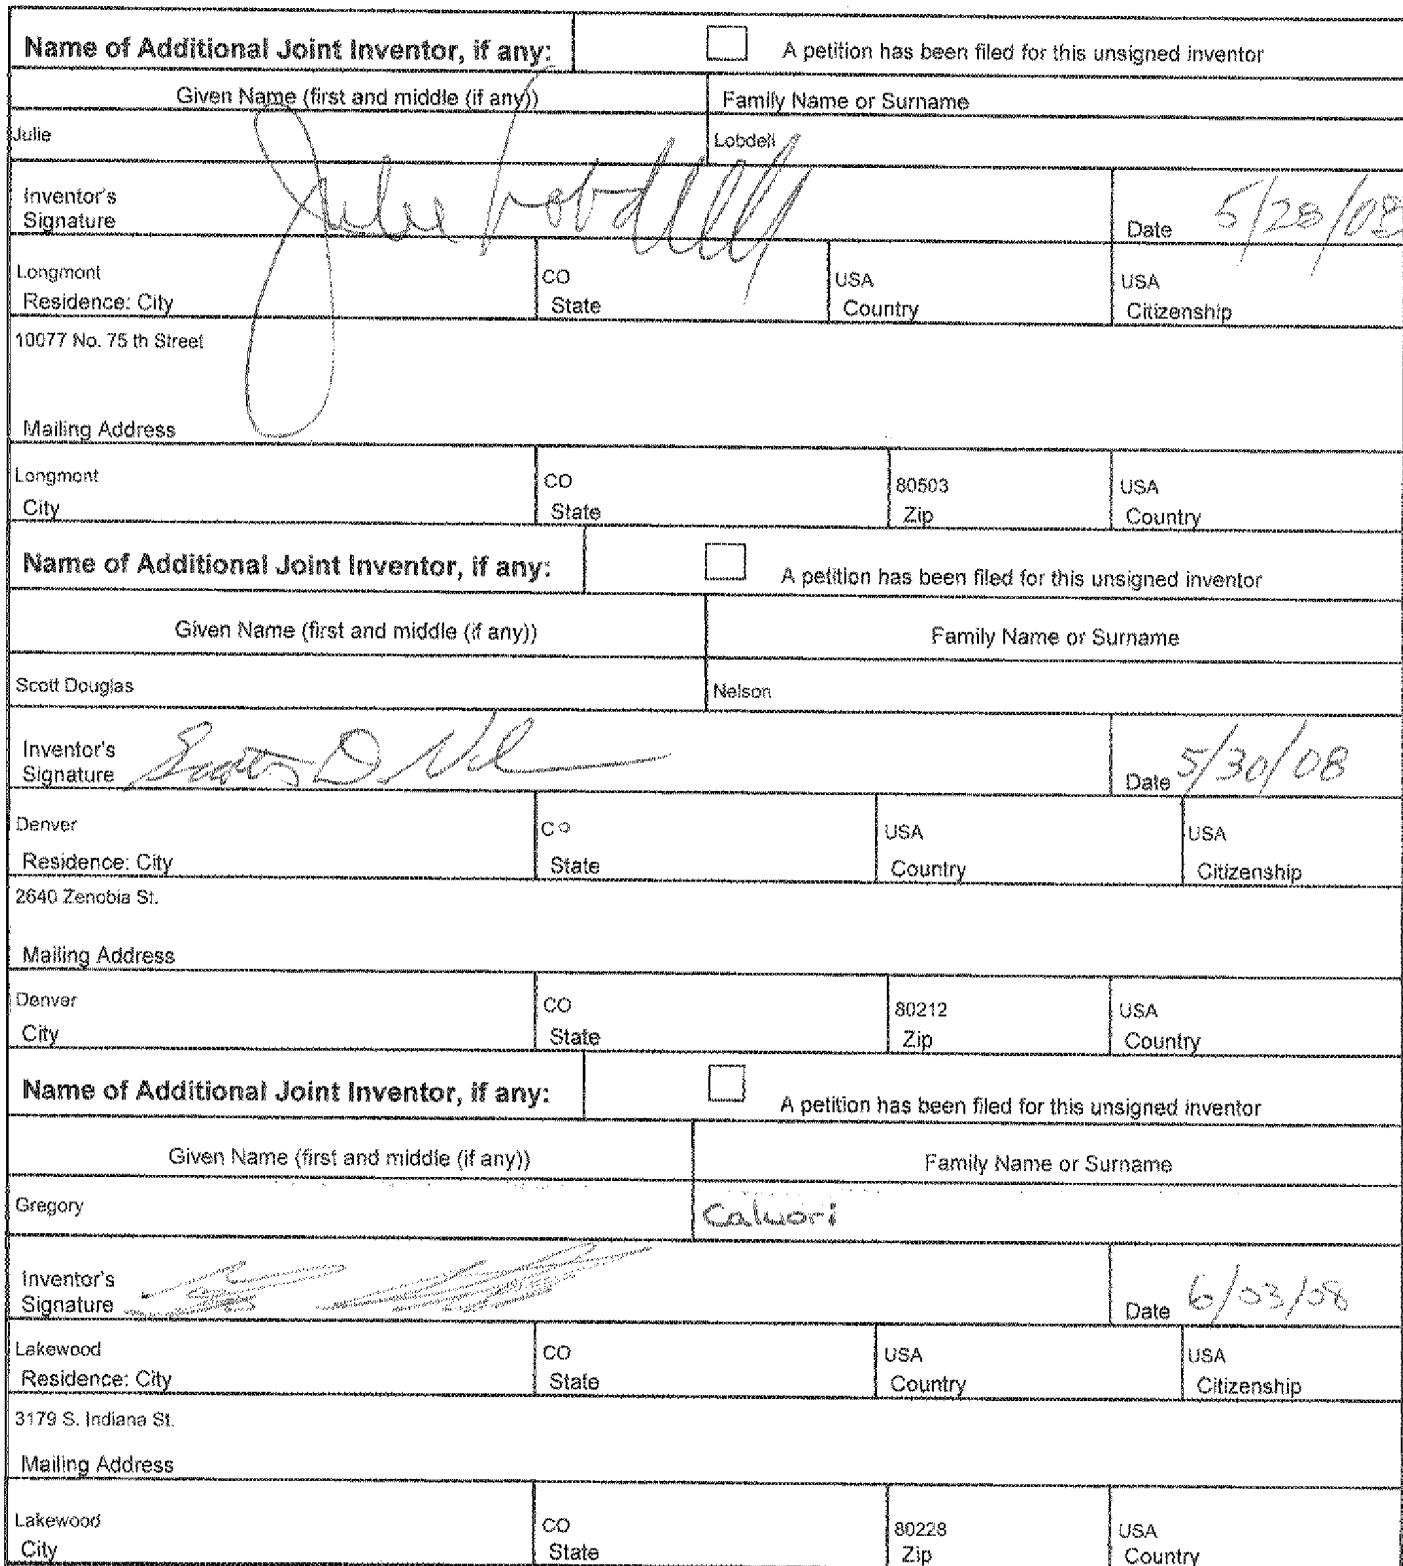 Name of Additional Joint Inventor, if any: A petition has been filed for this unsigned inventor
Given Name (first and middle (if any)) Family Name or Surname
Julie Lobdell
Inventor's
Signature Julie Lobdell Date 5/28/08
Longmont CO USA USA
Residence: City State Country Citizenship
10077 No. 75 th Street
Mailing Address
Longmont CO 80503 USA
City State Zip Country
Name of Additional Joint Inventor, if any: A petition has been filed for this unsigned inventor
Given Name (first and middle (if any)) Family Name or Surname
Scott Douglas Nelson
Inventor's
Signature Scott D. Nel Date 5/30/08
Denver Co USA USA
Residence: City State Country Citizenship
2640 Zenobia St.
Mailing Address
Denver CO 80212 USA
City State Zip Country
Name of Additional Joint Inventor, if any: A petition has been filed for this unsigned inventor
Given Name (first and middle (if any)) Family Name or Surname
Gregory Caluori
Inventor's
Signature Date 6/03/08
Lakewood CO USA USA
Residence: City State Country Citizenship
3179 S. Indiana St.
Mailing Address
Lakewood CO 80228 USA
City State Zip Country